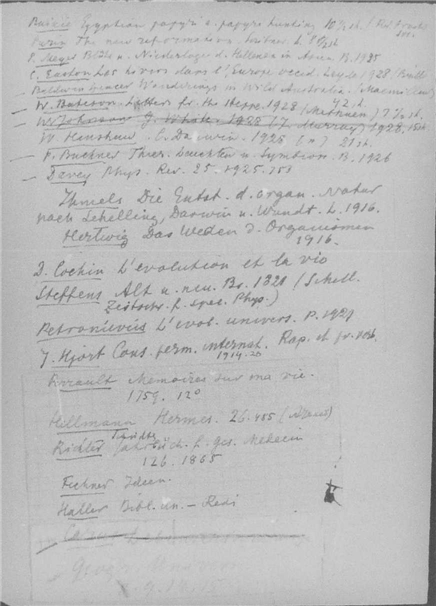 Baikie Egyptian papyri & papyrus hunting 10/ sh. (Rel.
The new reformation. L. 8
P. Meyer Blüte u. Niederlage d. Hellen. in Asien B. 1925
C. Easton Les hivers dans l'Europe occid. Leyde 1928 (Brill)
Baldwin Spencer Wanderings in Wild Australia. (Macmillan)
W. Bateson Letters fr. the Steppe. 1928 (Methuen) 7½ sh.
W. Johnson G. White. 1928 (J. Murray) 1928, 15sh
W. Henshaw C. Darwin. 1926 21 sh.
P. Buchner Tier. Leuchten u. Symbios. B. 1926
Davey Phys. Rev. 25. 1925. 753
Ihmels Die Entst. d. organ. Natur
nach Schelling, Darwin u. Wundt. L. 1916.
Hertwig Das Werden d. Organismen
1916.
D. Cochin L'evolution et la vie
Steffens Alt u. neu. Br. 1821 (Schell.
Zeitschr. f. spec. Phys.)
Petronievics L'evol. univers. P. 1921
J. Hjort Cons. perm. internat. Rap. et pr. verb.
1919.20
Perrault Memoires sur ma vie.
1759. 12°
Hellmann Hermes. 26. 455
Richter Jahrbüch. f. ges. Medecin
126. 1865
Fechner Ideen.
Haller Bibl. un. – Redi